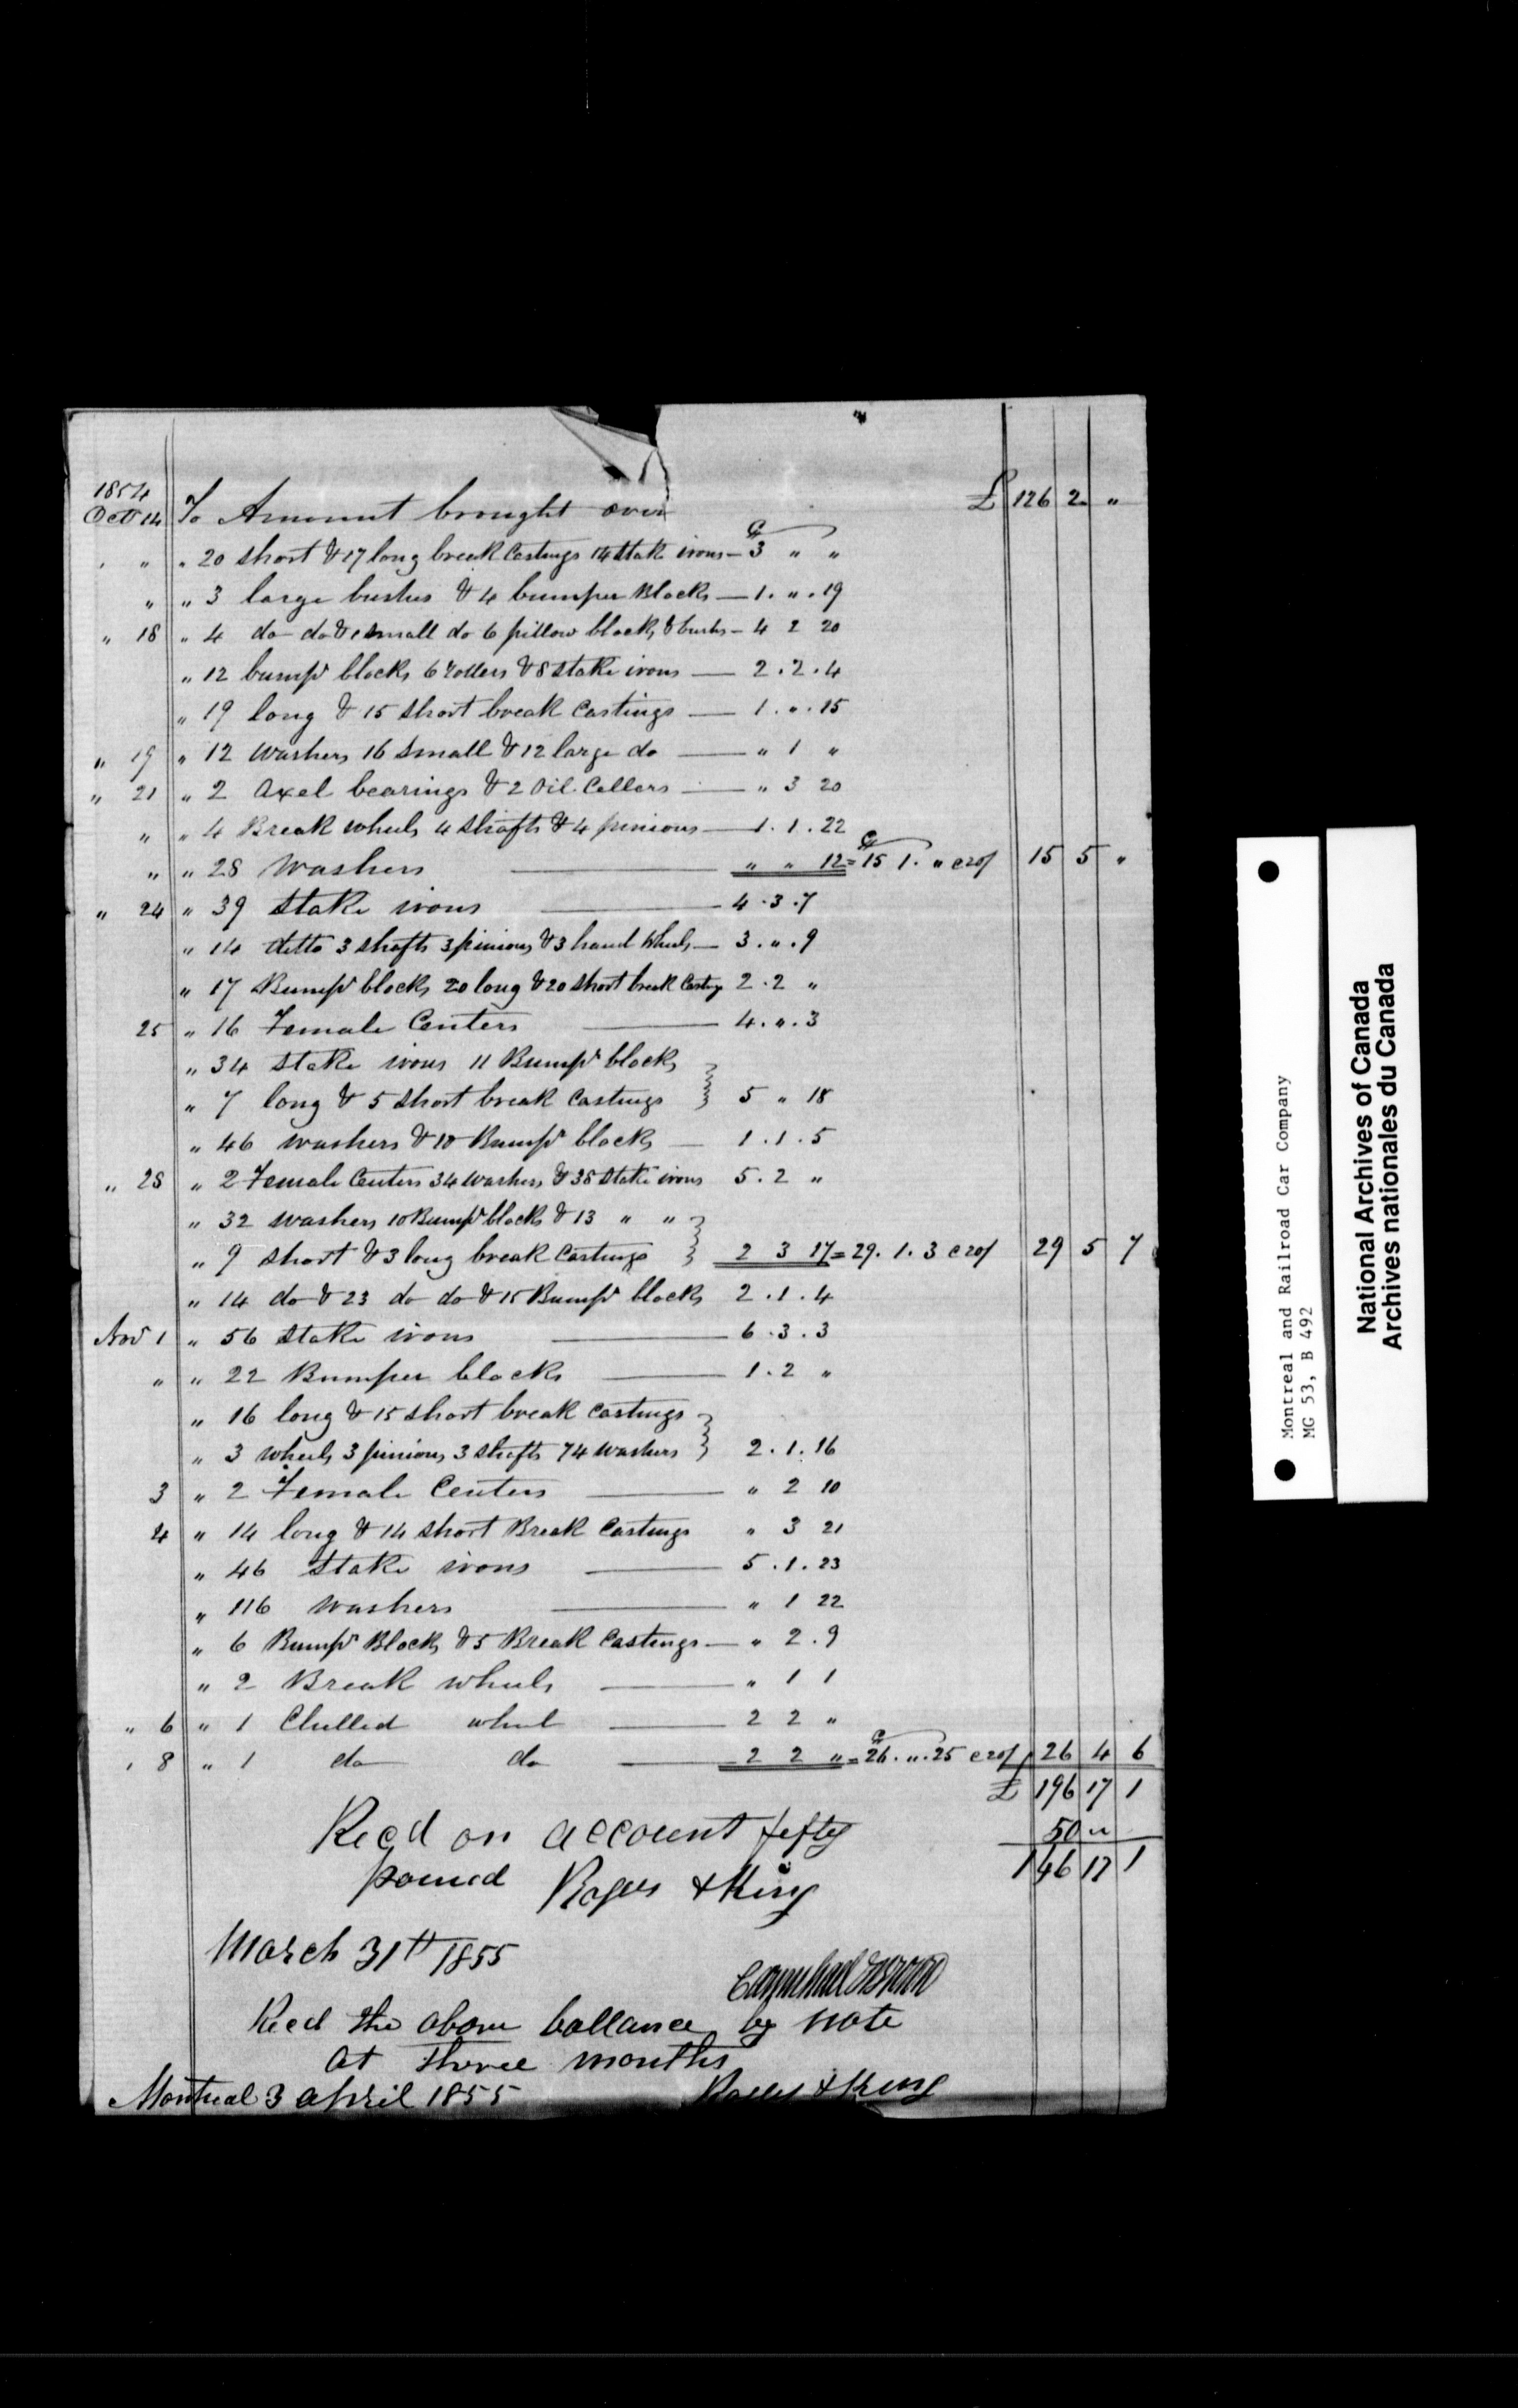 1854
Octr 14 To Amount brought over £ 126 2 "
" " 20 short & 17 long break Castings 14 stake irons – C 3 " "
" " 3 large bushes & 4 bumper Blocks — 1 . " . 19
" 18 " 4 do do & 1 small do 6 pillow blocks & bushs – 4 2 20
" 12 bumpr blocks 6 rollers & 8 stake irons — 2 . 2 . 4
" 19 long & 15 short break Castings — 1 . " . 15
" 19 " 12 washers 16 small & 12 large do — " 1 "
" 21 " 2 Axel bearings & 2 Oil Cellers — " 3 20
" " 4 Break wheels 4 shafts & 4 pinions — 1 . 1 . 22
" " 28 Washers — " " 12 = C 15 1 . " @ 20/ 15 5 "
" 24 " 39 Stake irons — 4 . 3 . 7
" 14 ditto 3 shafts 3 pinions & 3 hand Wheels — 3 . " . 9
" 17 Bumpr blocks 20 long & 20 short break Castings 2 . 2 "
25 " 16 Female Centers — 4 . " . 3
" 34 stake irons 11 Bumpr blocks
" 7 long & 5 short break Castings } 5 " 18
" 46 washers & 10 Bumpr blocks — 1 . 1 . 5
" 28 " 2 Female Centers 34 washers & 38 stake irons 5 . 2 "
" 32 washers 10 Bumpr blocks & 13 " "
" 9 short & 3 long break Castings } 2 3 17 = 29 . 1 . 3 @ 20/ 29 5 7
" 14 do & 23 do do & 15 Bumpr blocks 2 . 1 . 4
Nov 1 " 56 stake irons — 6 . 3 . 3
" " 22 Bumper blocks — 1 . 2 "
" 16 long & 15 short break castings
" 3 wheels 3 pinions 3 shafts 74 washers } 2 . 1 . 16
3 " 2 Female Centers — " 2 10
4 " 14 long & 14 short Break Castings " 3 21
" 46 Stake irons — 5 . 1 . 23
" 116 Washers — " 1 22
" 6 Bumpr Blocks & 5 Break Castings — " 2 . 9
" 2 Break wheels — " 1 1
" 6 " 1 Chilled wheel — 2 2 "
" 8 " 1 do do — 2 2 " = C 26 . " . 25 @ 20/ 26 4 6
£ 196 17 1
Recd on account fifty 50 "
pound Rogers & King 146 17 1
March 31th 1855
Recd the above ballance by note
at three months
Montreal 3 april 1855 Rogers & King
Montreal and Railroad Car Company
MG 53, B 492
National Archives of Canada
Archives nationales du Canada